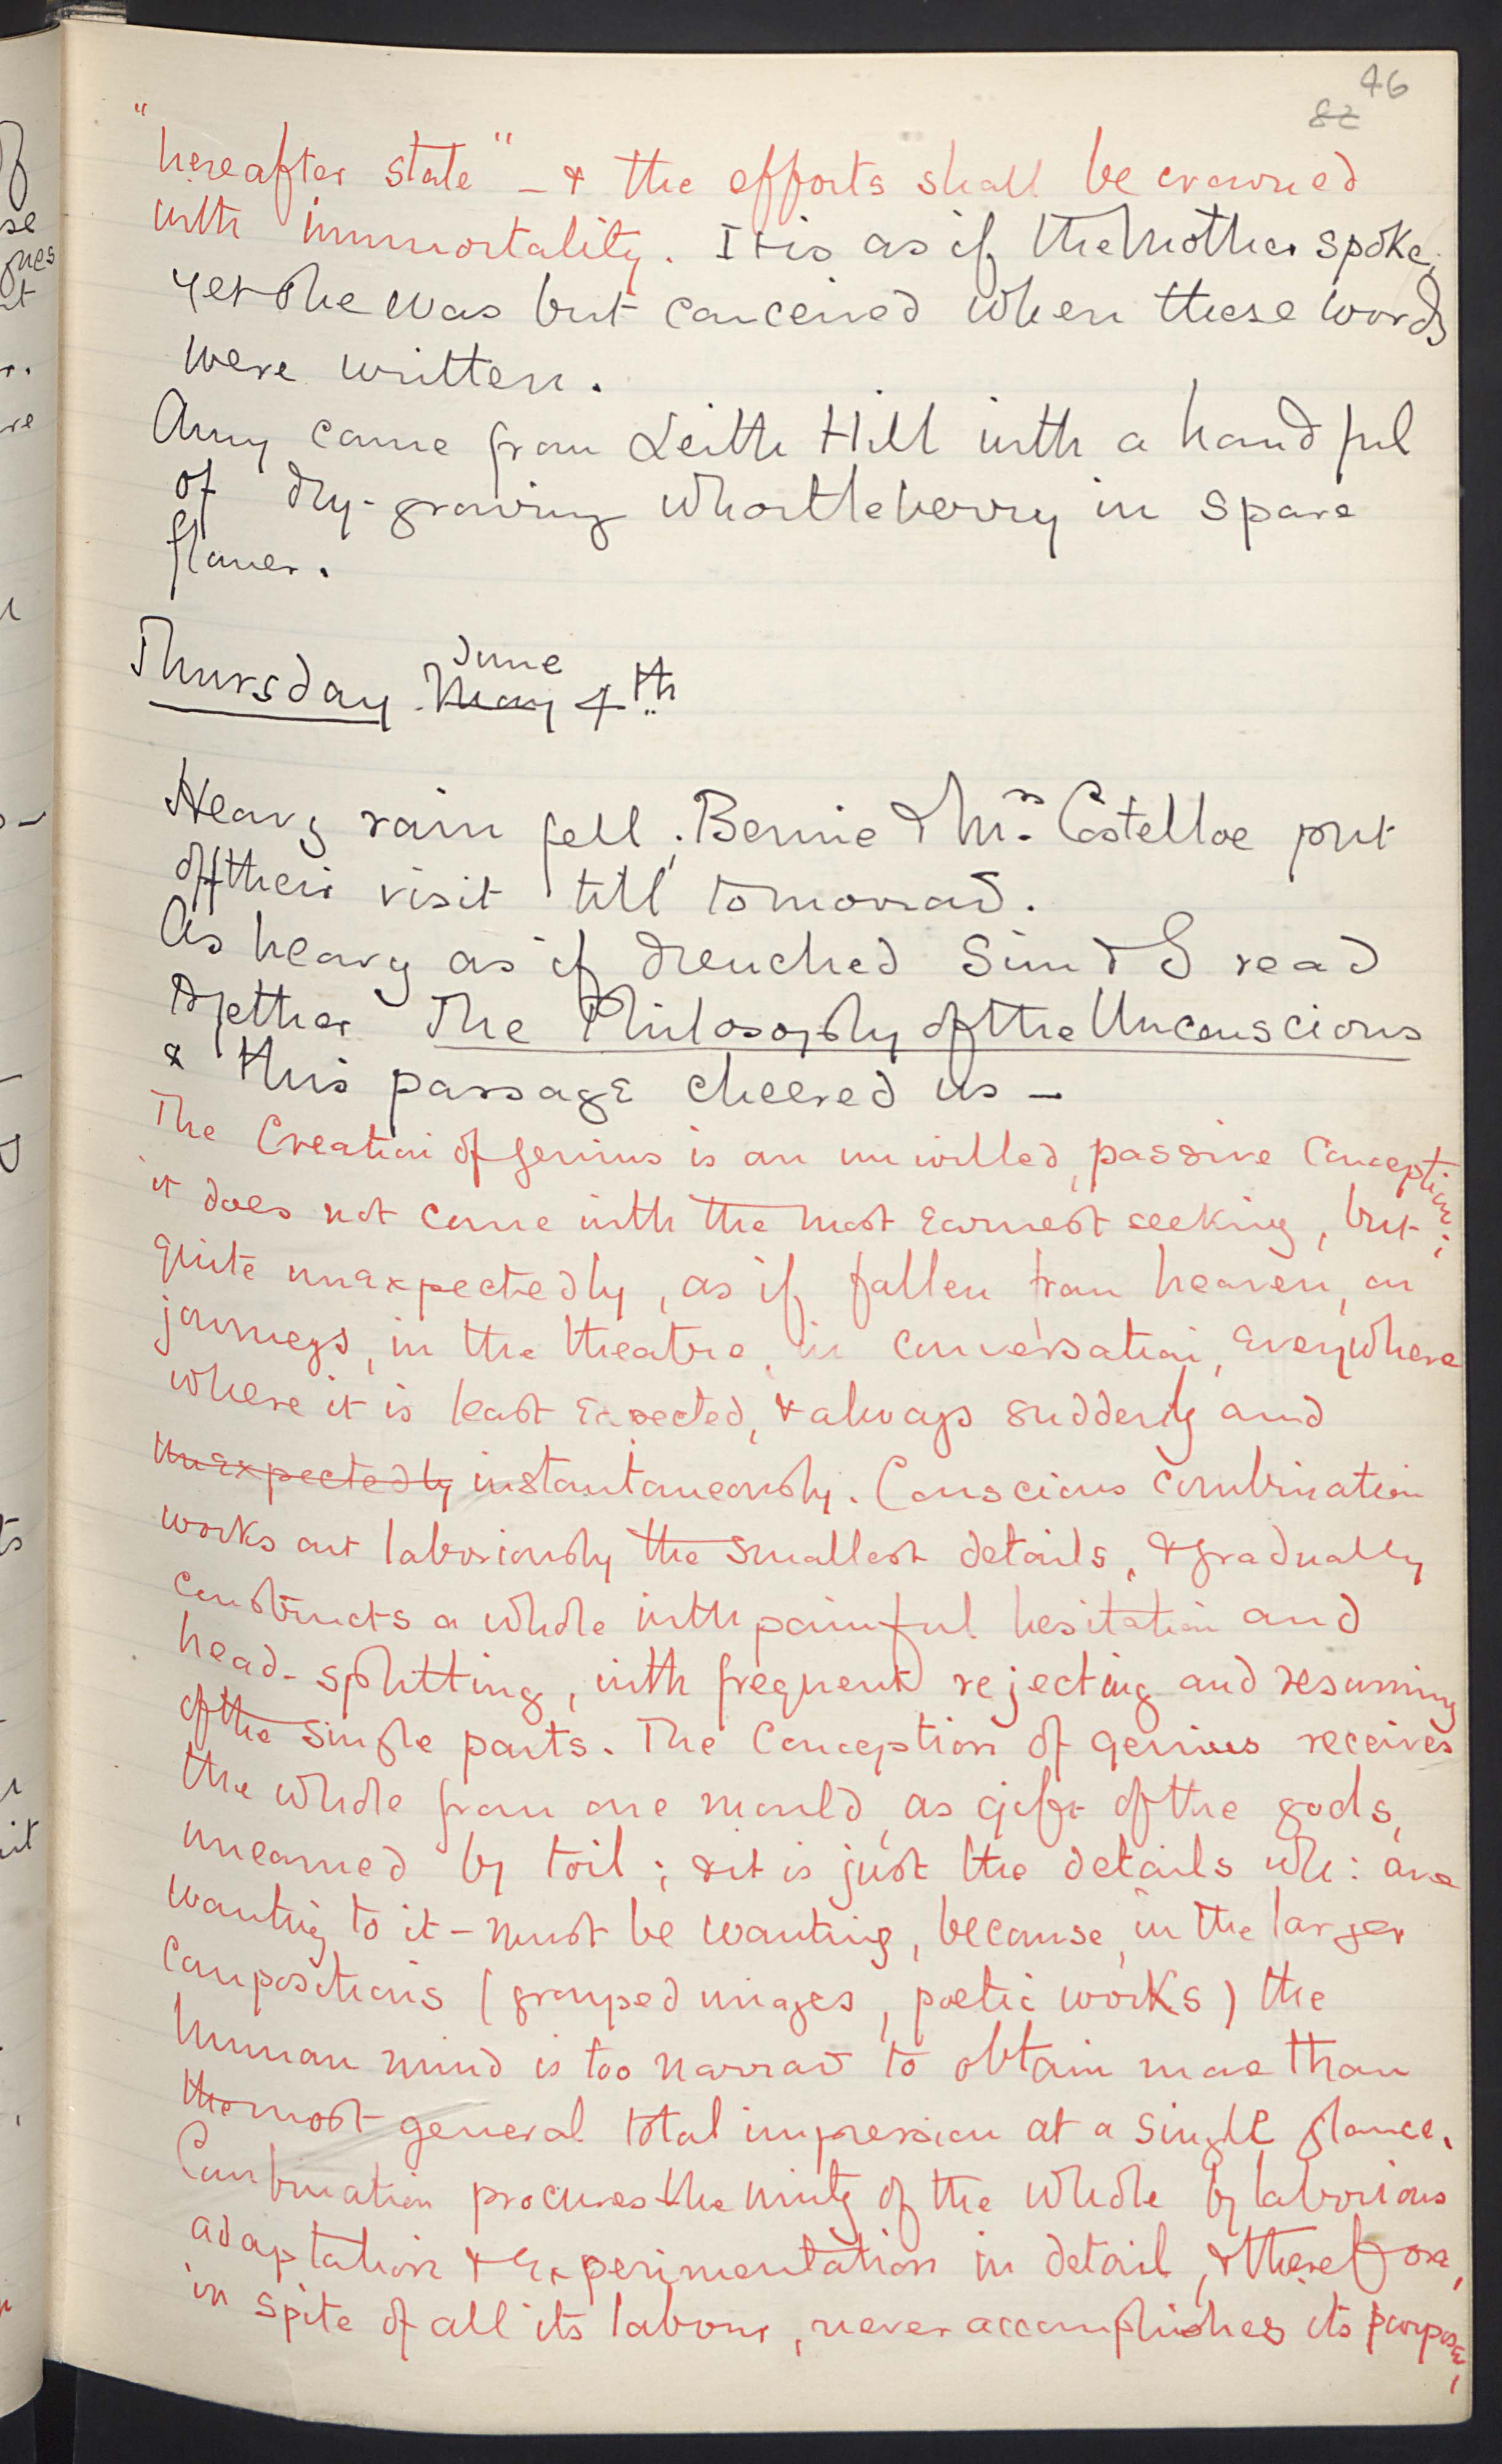 46
82
"hereafter state" – & the efforts shall be crowned
with immortality. It is as if the Mother spoke;
yet she was but conceived when these words
were written.
Amy came from Leith Hill with a handful
of dry-growing whortleberry in spare
flower.
June
Thursday May 4th
Heavy rain fell. Bernie & Mrs. Costelloe put
off their visit till tomorrow.
As heavy as if drenched Sim & I read
together The Philosophy of the Unconscious
& this passage cheered us –
The Creation of genius is an unwilled, passive Conception;
it does not come with the most earnest seeking, but
quite unexpectedly, as if fallen from heaven, on
journeys, in the theatre, in conversation, everywhere
where it is least expected, & always suddenly and
unexpectedly instantaneously. Conscious combination
works out laboriously the smallest details, & gradually
constructs a whole with painful hesitation and
head-splitting, with frequent rejecting and resuming
of the single parts. The Conception of genius receives
the whole from one mould, as gift of the gods,
unearned by toil; & it is just the details wh: are
wanting to it – must be wanting, because, in the larger
compositions (grouped images, poetic works) the
human mind is too narrow to obtain more than
the most general total impression at a single glance.
Combination procures the unity of the whole by laborious
adaptation & experimentation in detail, & therefore,
in spite of all its labour, never accomplishes its purpose,